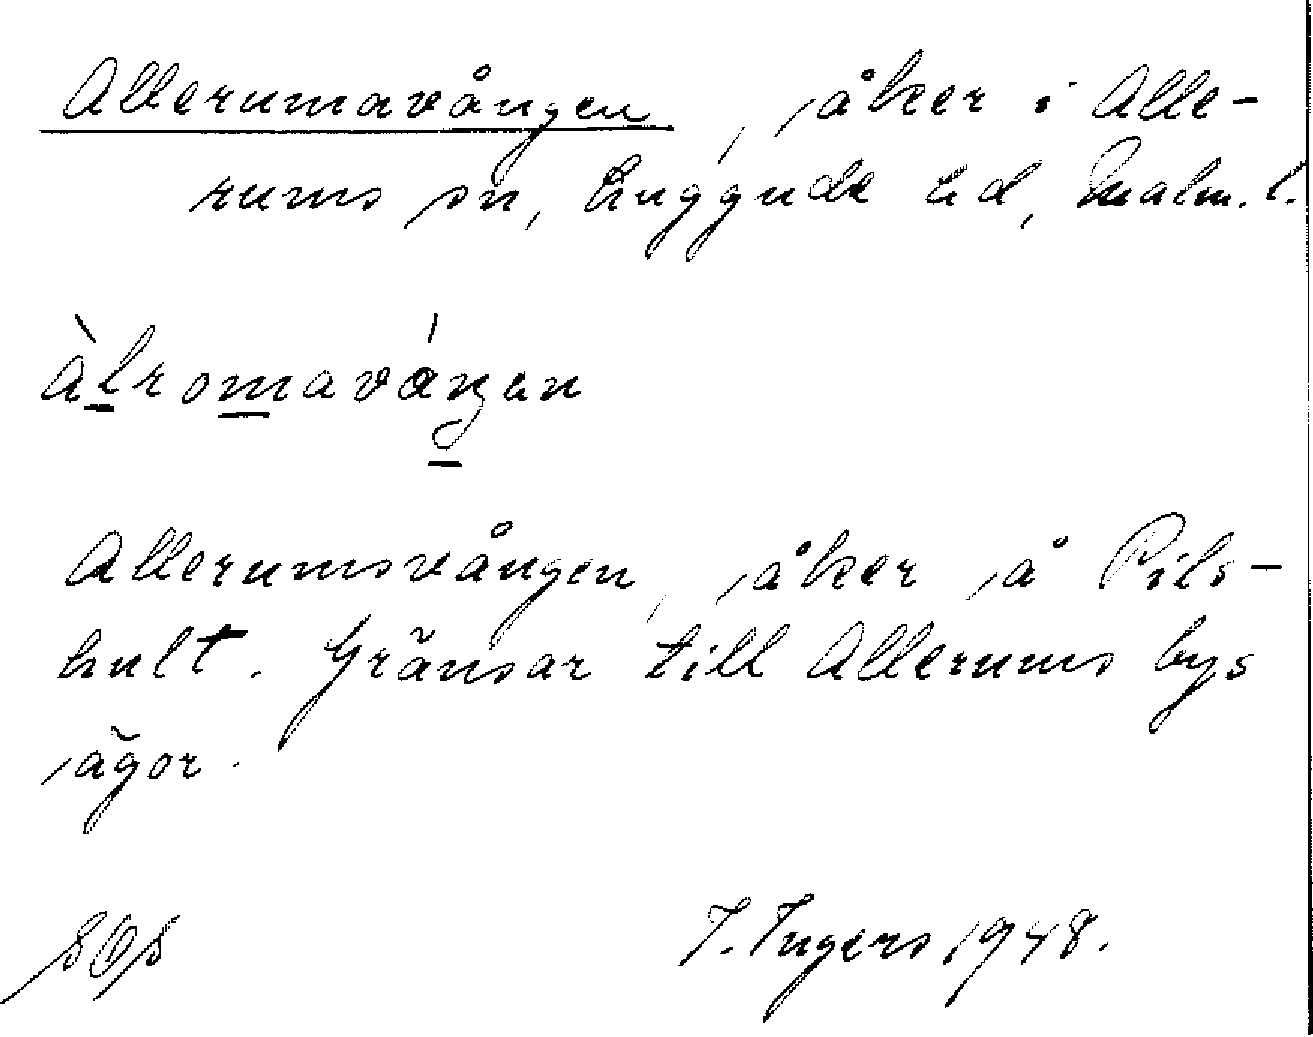 Allerumavången, åker i Alle-
rums sn, Luggude hd, Malm. l.
àlromavángan
Allerumsvången, åker å Pils-
hult. Gränsar till Allerums bys
ägor.
I. Ingers 1948.